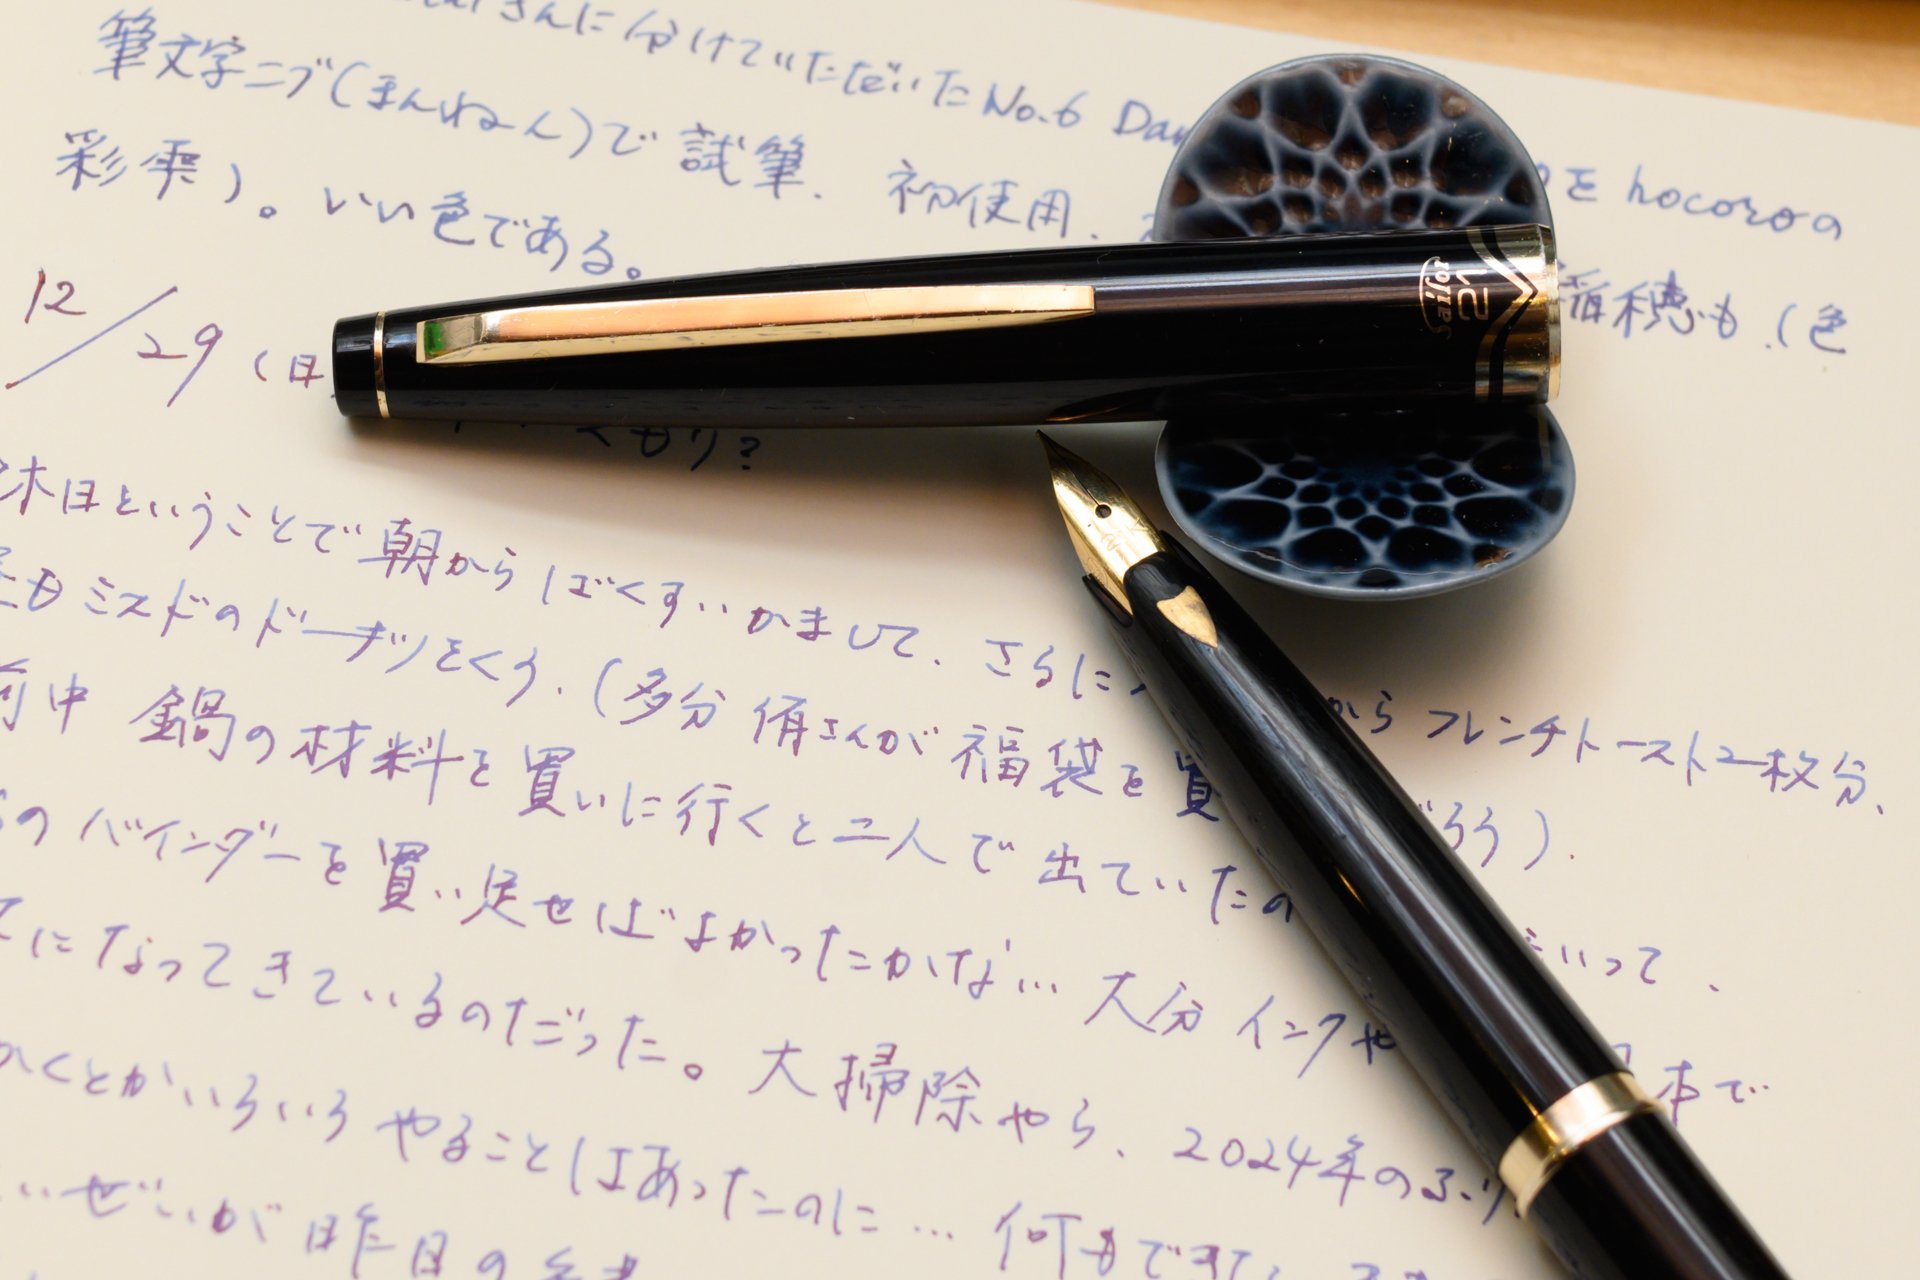 さんに分けていただいた No.6 Dan をhocoroの
筆文字ニブ(まんねん)で試筆. 初使用. 稲穂も.(色
彩雫)。いい色である。
12/29 (日 くもり?
休日ということで朝からぼくすいかまして、さらに からフレンチトースト2枚分、
もミスドのドーナツをくう.(多分 侑さんが福袋を買 だろう).
前中 鍋の材料を買いに行くと二人で出ていたの いって、
のバインダーを買い足せばよかったかな… 大分インクや 本で
てになってきているのだった。大掃除やら、2024年のふり
かくとかいろいろやることはあったのに… 何もできて
いぜいが昨日の
Sailor
21